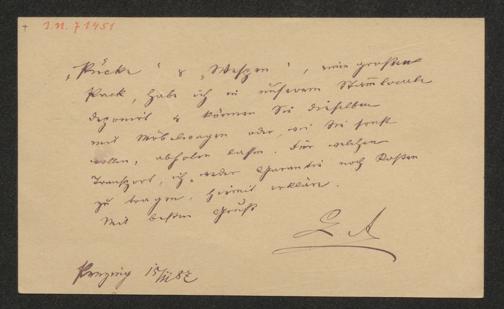 + I.N. 71451
„Stücke“ & „Wespen“, ein großer
Pack, habe ich in unserem Stammlocale
deponirt & können Sie dieselben
mit Möbelwagen oder, wie Sie sonst
wollen, abholen lassen. Für welchen
Transport, ich, weder Garantie noch Kosten
zu tragen, hiemit erkläre.
Mit bestem Gruß
L A
Penzing 15/ 87